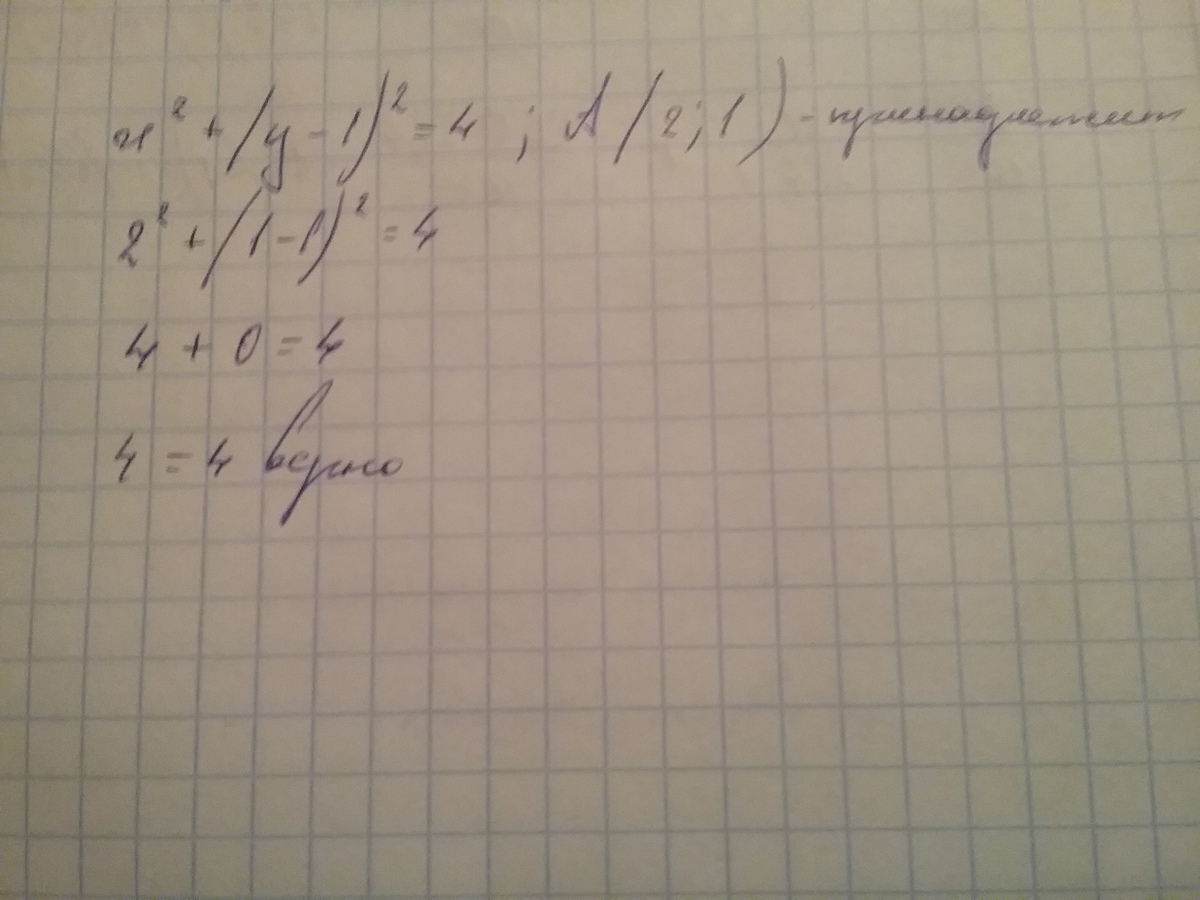 x² + (y - 1)² = 4 ; А (2; 1) - принадлежит
2² + (1 - 1)² = 4
4 + 0 = 4
4 = 4 верно